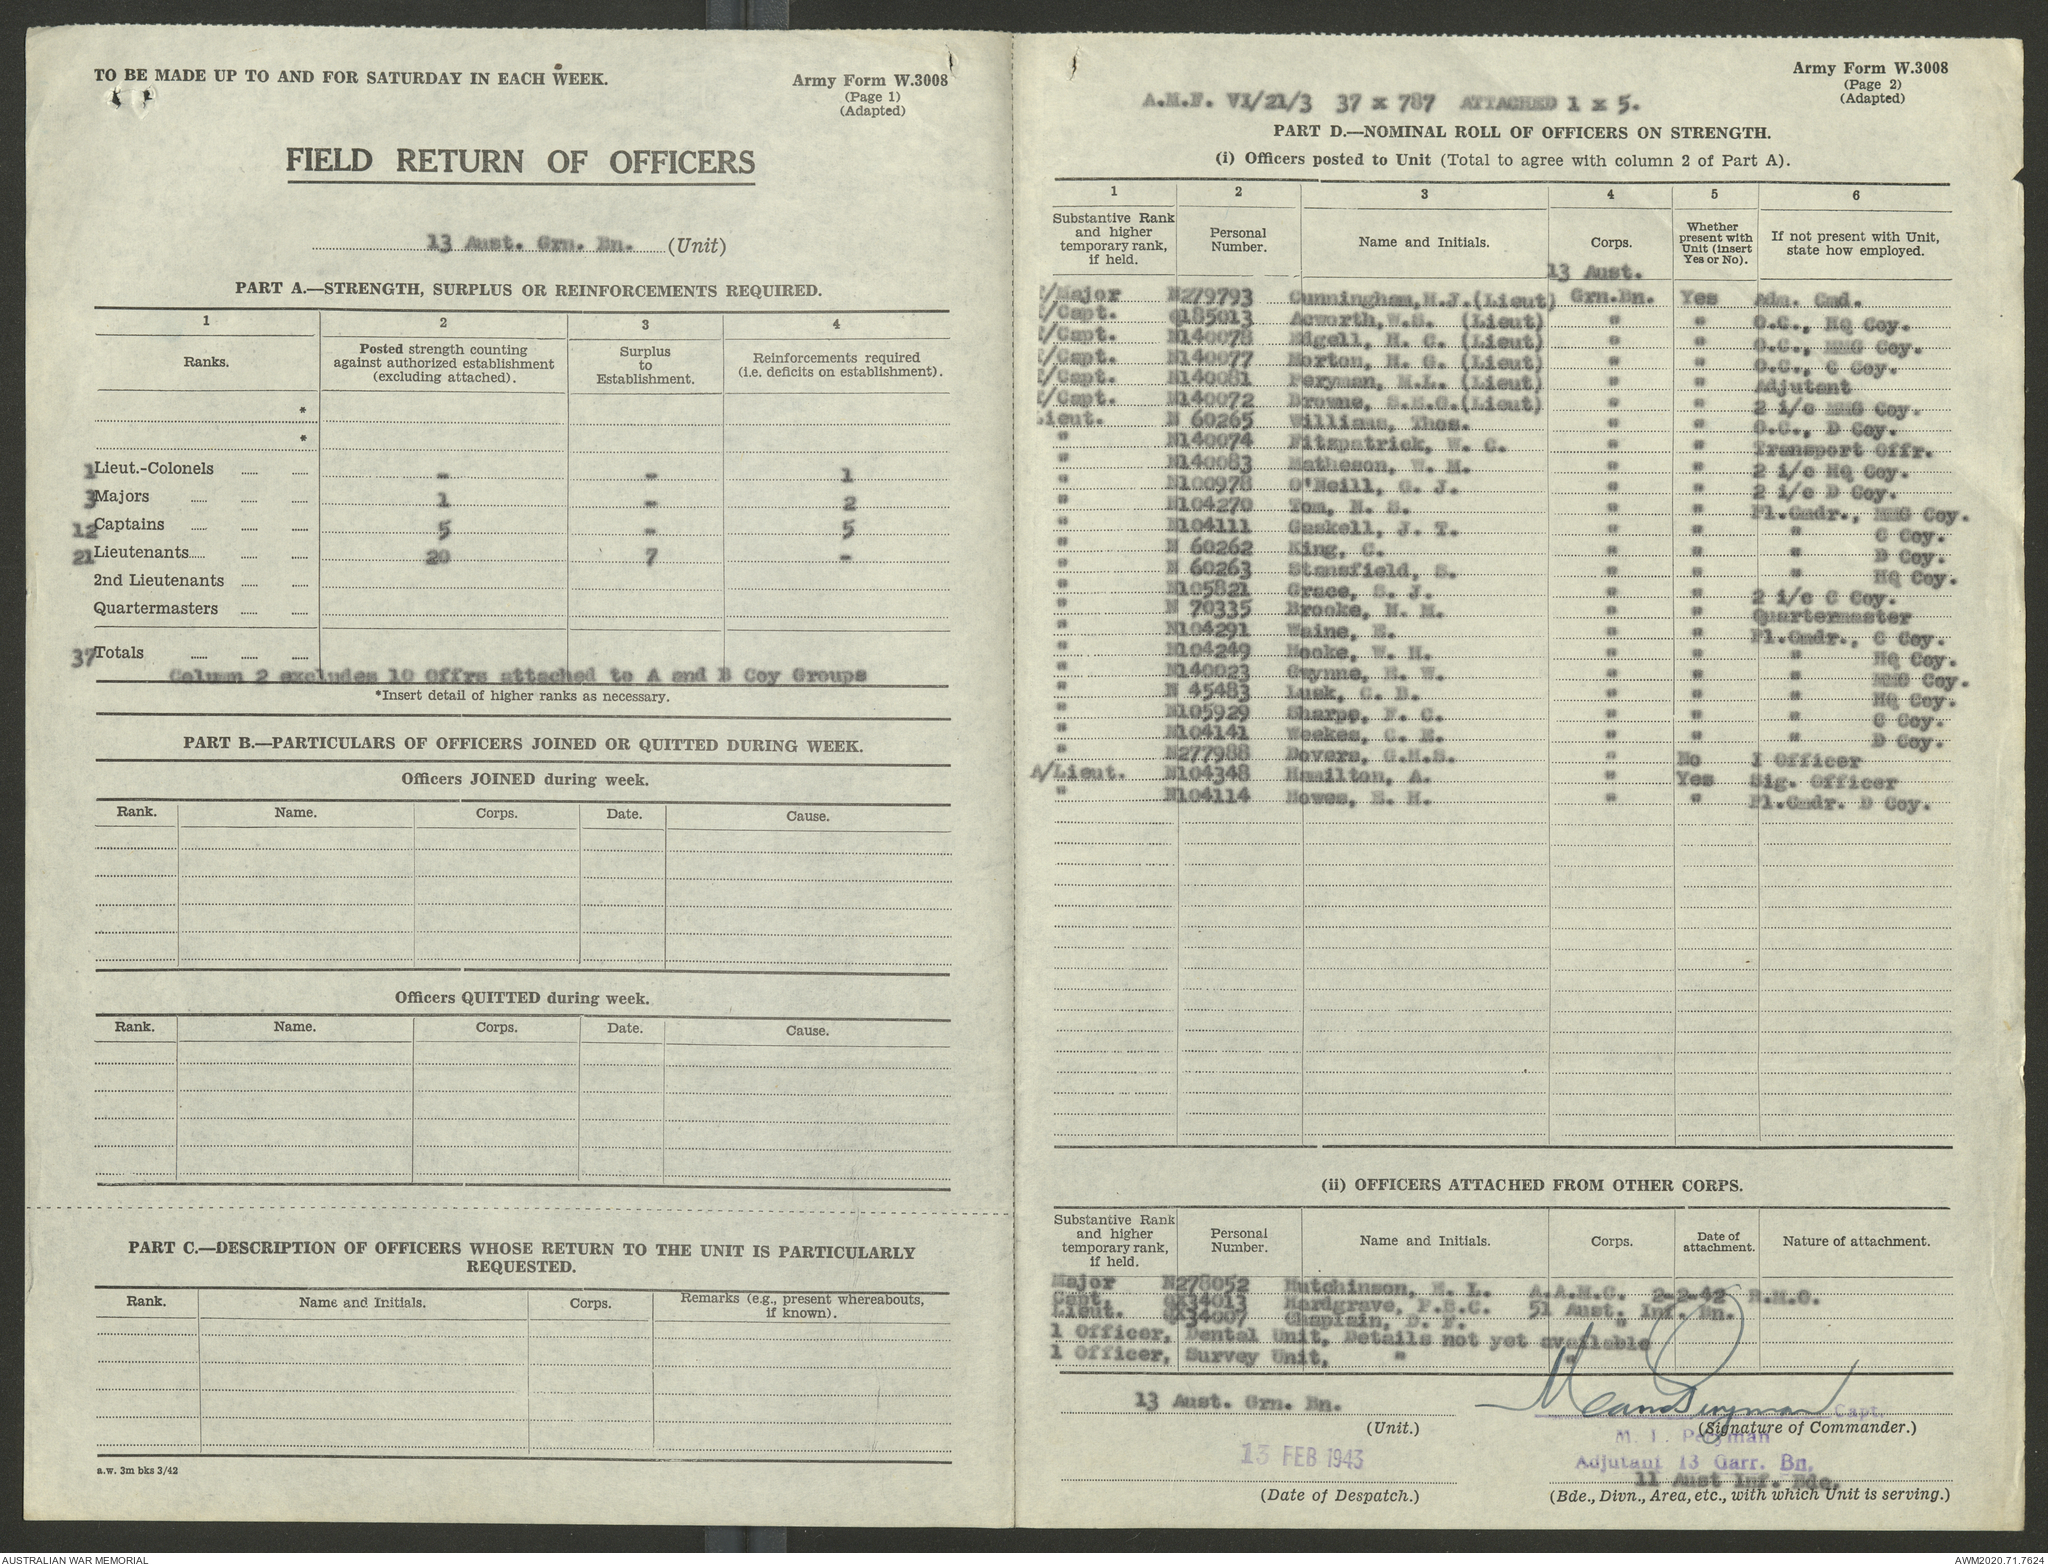 TO BE MADE UP TO AND FOR SATURDAY IN EACH WEEK.
Army Form W.3008
(Page 1)
(Adapted)
FIELD RETURN OF OFFICERS
13 Aust. Grn. Bn. (Unit)
PART A.—STRENGTH, SURPLUS OR REINFORCEMENTS REQUIRED.
1 2 3 4
Ranks. Posted strength counting against authorized establishment (excluding attached). Surplus to Establishment. Reinforcements required (i.e. deficits on establishment).
*
*
1 Lieut.-Colonels - - 1
3 Majors 1 - 2
12 Captains 5 - 5
21 Lieutenants 20 7 -
2nd Lieutenants
Quartermasters
37 Totals
Column 2 excludes 10 Offrs attached to A and B Coy Groups
*Insert detail of higher ranks as necessary.
PART B.—PARTICULARS OF OFFICERS JOINED OR QUITTED DURING WEEK.
Officers JOINED during week.
Rank. Name. Corps. Date. Cause.
Officers QUITTED during week.
Rank. Name. Corps. Date. Cause.
PART C.—DESCRIPTION OF OFFICERS WHOSE RETURN TO THE UNIT IS PARTICULARLY
REQUESTED.
Rank. Name and Initials. Corps. Remarks (e.g., present whereabouts, if known).
a.w. 3m bks 3/42
Army Form W.3008
(Page 2)
(Adapted)
A.M.F. VI/21/3 37 x 787 ATTACHED 1 x 5.
PART D.—NOMINAL ROLL OF OFFICERS ON STRENGTH.
(i) Officers posted to Unit (Total to agree with column 2 of Part A).
1 2 3 4 5 6
Substantive Rank and higher temporary rank, if held. Personal Number. Name and Initials. Corps. Whether present with Unit (insert Yes or No). If not present with Unit, state how employed.
13 Aust.
/Major N279793 Cunningham, H.J. (Lieut) Grn.Bn. Yes Adm. Cmd.
/Capt. Q185013 Acworth, W.S. (Lieut) " " O.C., HQ Coy.
/Capt. N140078 Edgell, H. C. (Lieut) " " O.C., MMG Coy.
/Capt. N140077 Morton, H. G. (Lieut) " " O.C., C Coy.
/Capt. N140081 Peryman, M.L. (Lieut) " " Adjutant
/Capt. N140072 Browne, S.E.G. (Lieut) " " 2 i/c MMG Coy.
Lieut. N 60265 Williams, Thos. " " O.C., D Coy.
" N140074 Fitzpatrick, W. C. " " Transport Offr.
" N140083 Matheson, W. M. " " 2 i/c HQ Coy.
" N100978 O'Neill, G. J. " " 2 i/c D Coy.
" N104270 Tom, N. S. " " Pl.Cmdr., MMG Coy.
" N104111 Gaskell, J. T. " " " C Coy.
" N 60262 King, C. " " " D Coy.
" N 60263 Stansfield, S. " " " HQ Coy.
" N105821 Grace, S. J. " " 2 i/c C Coy.
" N 70335 Brooke, H. M. " " Quartermaster
" N104291 Waine, E. " " Pl.Cmdr., C Coy.
" N104249 Hooke, W. H. " " " HQ Coy.
" N140023 Gwynne, E. W. " " " MMG Coy.
" N 45483 Lusk, C. B. " " " HQ Coy.
" N105929 Sharpe, F. C. " " " C Coy.
" N104141 Weekes, C. E. " " " D Coy.
" N277988 Dovers, G.H.S. " No I Officer
A/Lieut. N104348 Hamilton, A. " Yes Sig. Officer
" N104114 Howes, E. H. " " Pl.Cmdr. D Coy.
(ii) OFFICERS ATTACHED FROM OTHER CORPS.
Substantive Rank and higher temporary rank, if held. Personal Number. Name and Initials. Corps. Date of attachment. Nature of attachment.
Major N278052 Hutchinson, E. L. A.A.M.C. 2-2-42 R.M.O.
Capt. QX34013 Hardgrave, P.B.C. 51 Aust. Inf. Bn.
Lieut. QX34007 Chaplain, D. F. "
1 Officer, Dental Unit, Details not yet available
1 Officer, Survey Unit, " "
13 Aust. Grn. Bn.
(Unit.)
Capt.
(Signature of Commander.)
M. L. Peryman
Adjutant 13 Garr. Bn.
13 FEB 1943
(Date of Despatch.)
11 Aust Inf. Bde.
(Bde., Divn., Area, etc., with which Unit is serving.)
AUSTRALIAN WAR MEMORIAL
AWM2020.71.7624